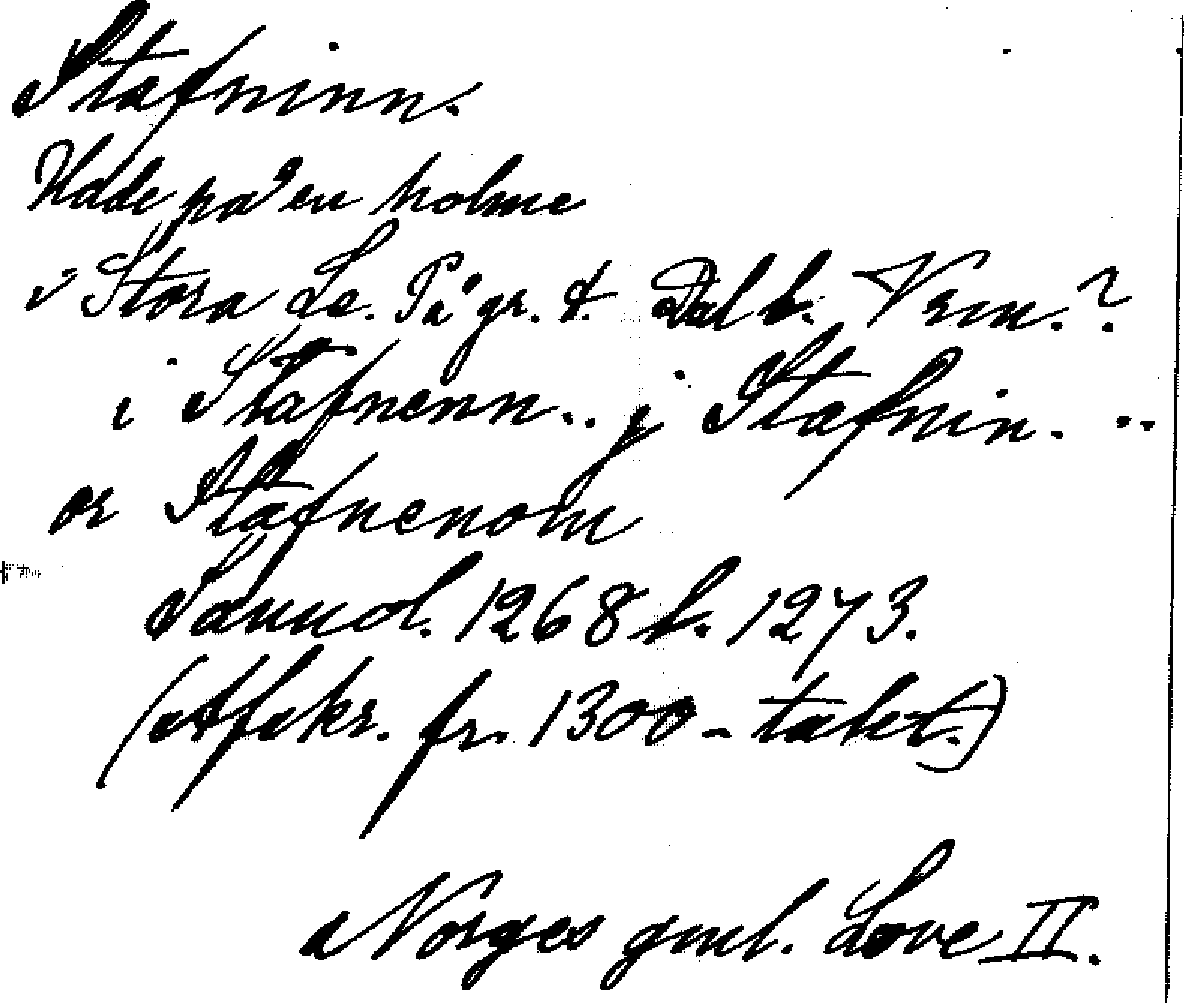 Stafninn.
Udde på en holme
i Stora Le. På gr. t. Dal l. Värm.?
i Stafnenn.. j Stafnin. ..
or Stafnenom
Sannol. 1268 l. 1273.
(Afskr. fr. 1300-talet.)
Norges gml. Love II.